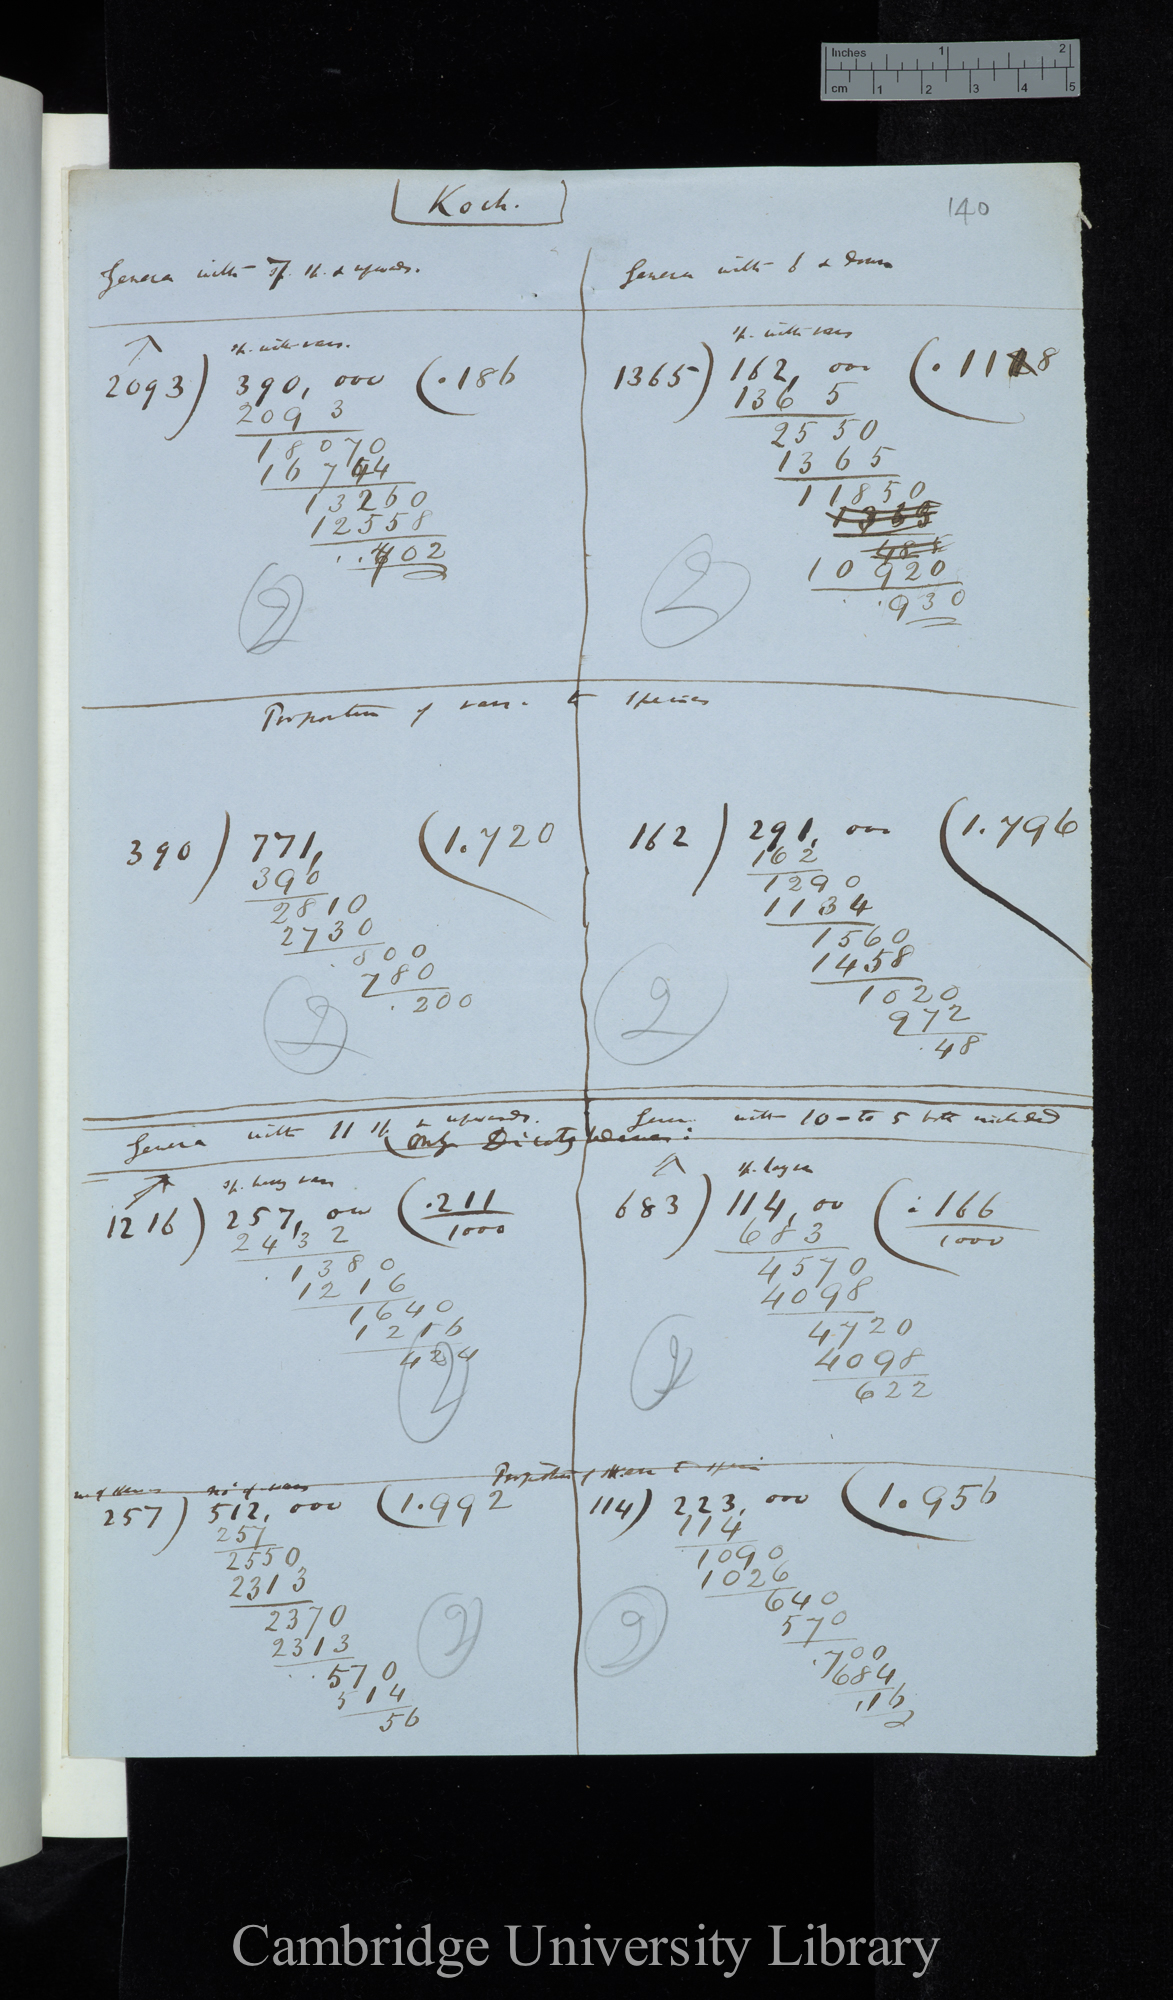 Inches 1 2
cm 1 2 3 4 5
Koch.
140
Genera with 7 sp. & upwards.
sp. with vars.
2093) 390, 000 (.186
2093
18070
16744
13260
12558
..702
2
Genera with 6 & down
sp. with vars
1365) 162, 000 (.118
1365
2550
1365
11850
1365
485
10920
..930
2
Proportion of vars. to species
390) 771, (1.720
390
2810
2730
.800
780
.200
2
162) 291, 000 (1.796
162
1290
1134
1560
1458
1020
972
.48
2
Genera with 11 sp & upwards.
(Only Dicotyledones:
Genera with 10 - to 5 both included
sp. having vars
1216) 257, 000 (.211
1000
2432
.1380
1216
1640
1216
424
2
683) 114, 00 (.166
1000
683
4570
4098
4720
4098
622
2
Proportion of vars to species
no of vars
257) 512, 000 (1.992
257
2550
2313
2370
2313
..570
514
56
2
114) 223, 000 (1.956
114
1090
1026
640
570
.700
684
.16
2
Cambridge University Library